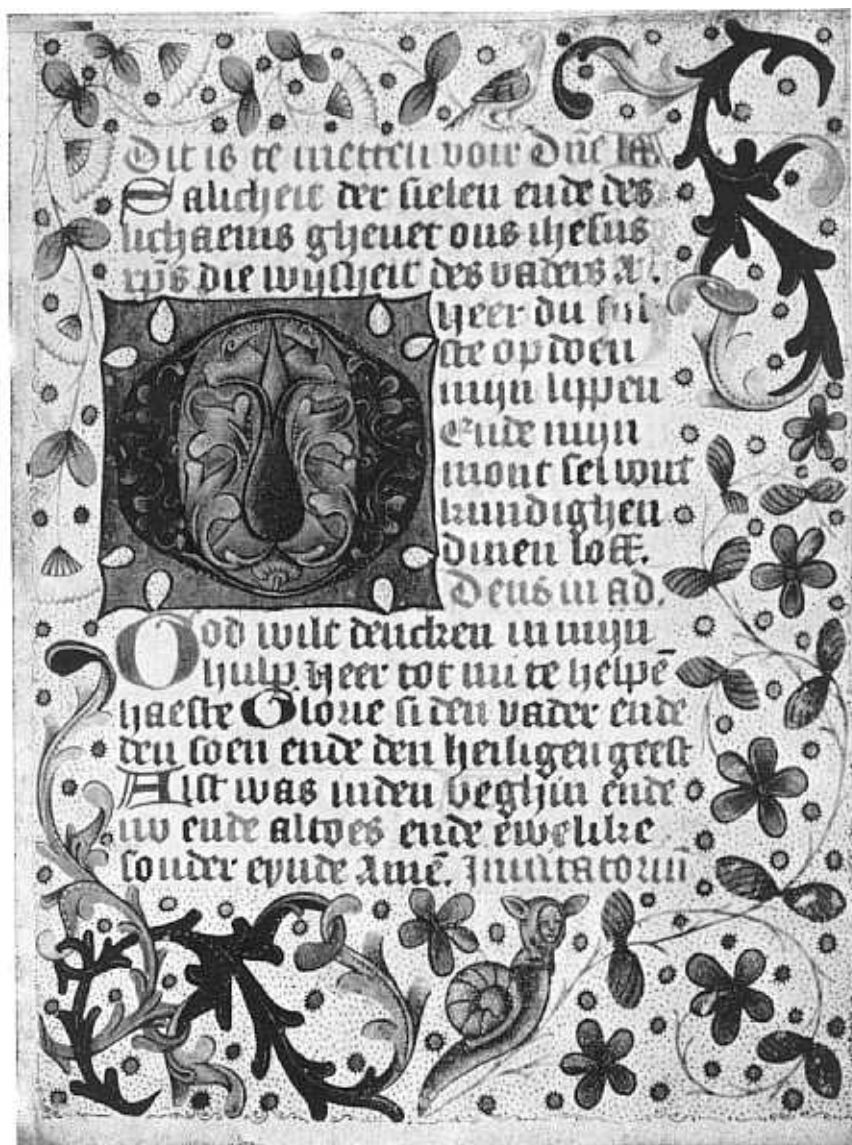 Dit is te metten voir Dn̄e la.
Salicheit der sielen ende des
lichaems gheuet ons ihesus
xp̄s die wijsheit des vaders A.
O heer du sul
ste opdoen
mijn lippen
Ende mijn
mont sel vout
kundighen
dinen loff.
Deus in ad.
God wilt dencken in mijn
hulp. heer tot mi te helpē
haeste Glorie si den vader ende
den soen ende den heiligen geest
Alst was inden beghin ende
nv ende altoes ende ewelike
sonder eynde Amē. Jnuitatoriū